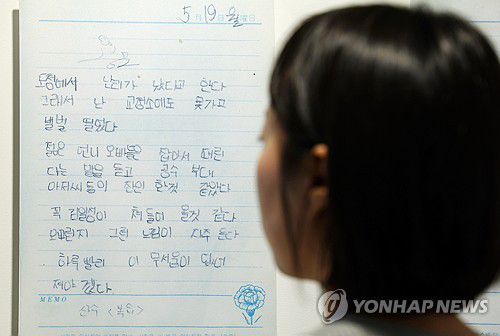 5月 19日 월曜日
공포
도청에서 난리가 났다고 한다
그래서 난 교정소에도 못가고
벌벌 떨었다
젊은 언니 오빠들을 잡아서 때린
다는 말을 듣고 공수 부대
아저씨들이 잔인 한것 같았다
꼭 김일성이 쳐들어 올것 같다
그런 느낌이 자주 든다
하루 빨리 이 무서움이 없어
져야 겠다.
MEMO
산수 <복습>
YONHAP NEWS